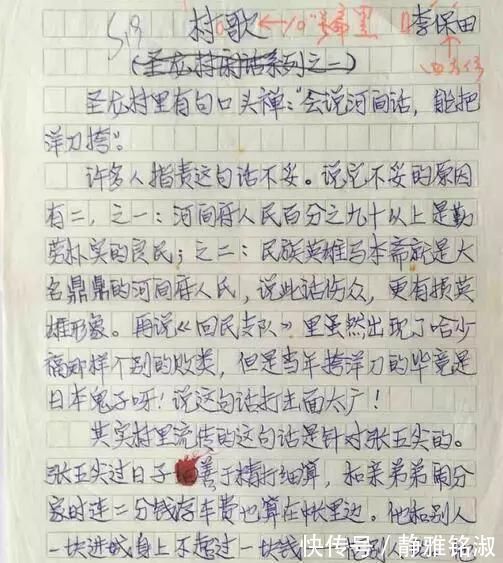 村歌 ←10" 李保田
(圣龙村闲话系列之一)
圣龙村里有句口头禅:“会说河间话,能把
洋刀挎”。
许多人指责这句话不妥。说它不妥的原因
有二,之一:河间府人民百分之九十以上是勤
劳朴实的良民;之二:民族英雄马本斋就是大
名鼎鼎的河间府人民,说此话伤众,更有损英
雄形象。再说《回民支队》里虽然出现了哈少
福那样个别的败类,但是当年挎洋刀的毕竟是
日本鬼子呀!说这句话打击面太广!
其实村里流传的这句话是针对张五尖的。
张五尖过日子善于精打细算,和亲弟弟闹分
家时连二分钱存车费也算在帐里边。他和别人
一块进城身上不超过一块钱
快传号/静雅铭淑